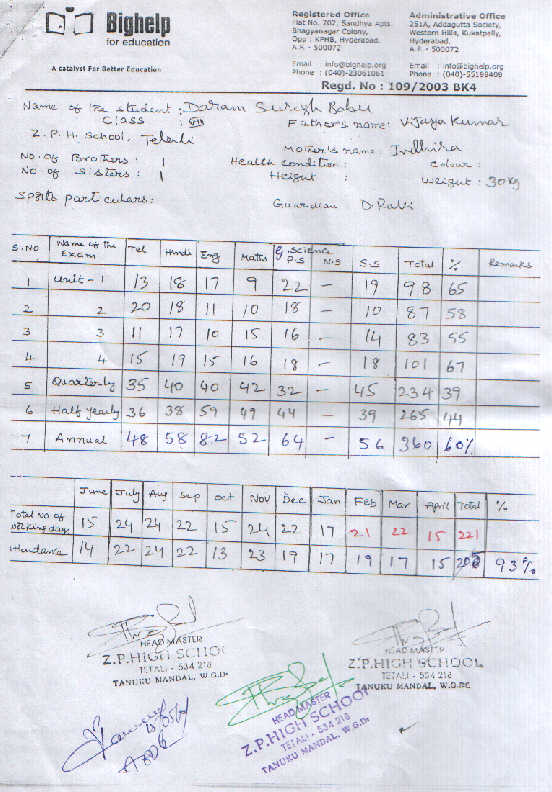 Bighelp
for education
A catalyst For Better Education
Registered Office
Flat No. 702, Sandhya Apts.
Bhagyanagar Colony,
Opp : KPHB, Hyderabad.
A.P. - 500072
Email : info@bighelp.org
Phone : (040)-23061061
Administrative Office
251A, Addagutta Society,
Western Hills, Kukatpally,
Hyderabad.
A.P. - 500072
Email : info@bighelp.org
Phone : (040)-55198409
Regd. No : 109/2003 BK4
Name of the student : Daram Suresh Babu
Class : VIII
Father's name: Vijaya Kumar
Z.P.H. School,
Mother's name:
No. of Brothers : 1
Health condition :
Colour :
No of Sisters : 1
Height :
Weight : 30 Kg
Sports particulars:
Guardian D.Ravi
S.NO Name of the Exam Tel Hindi Eng Maths G.Science P.S N.S S.S Total % Remarks
1 Unit - 1 13 18 17 9 22 - 19 98 65
2 2 20 18 11 10 18 - 10 87 58
3 3 11 17 10 15 16 - 14 83 55
4 4 15 19 15 16 18 - 18 101 67
5 Quarterly 35 40 40 42 32 - 45 234 39
6 Half yearly 36 38 59 49 44 - 39 265 44
7 Annual 48 58 82 52 64 - 56 360 60%
June July Aug Sep Oct Nov Dec Jan Feb Mar April Total %
Total No of working days 15 24 24 22 15 24 22 17 21 22 15 221
Attendance 14 22 24 22 13 23 19 17 19 17 15 205 93%
HEAD MASTER
Z.P.HIGH SCHOOL
TETALI - 534 218
TANUKU MANDAL, W.G.Dt
HEAD MASTER
Z.P.HIGH SCHOOL
TETALI - 534 218
TANUKU MANDAL, W.G.Dt
HEAD MASTER
Z.P.HIGH SCHOOL
TETALI - 534 218
TANUKU MANDAL, W.G.Dt